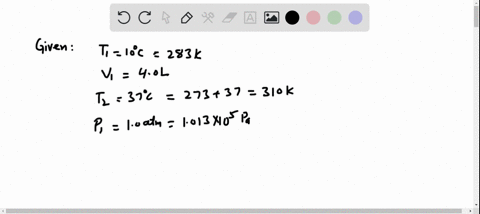 Given: T₁ = 10°C = 283K
V₁ = 4.0L
T₂ = 37°C = 273 + 37 = 310K
P₁ = 1.0atm = 1.013 × 10⁵ Pa